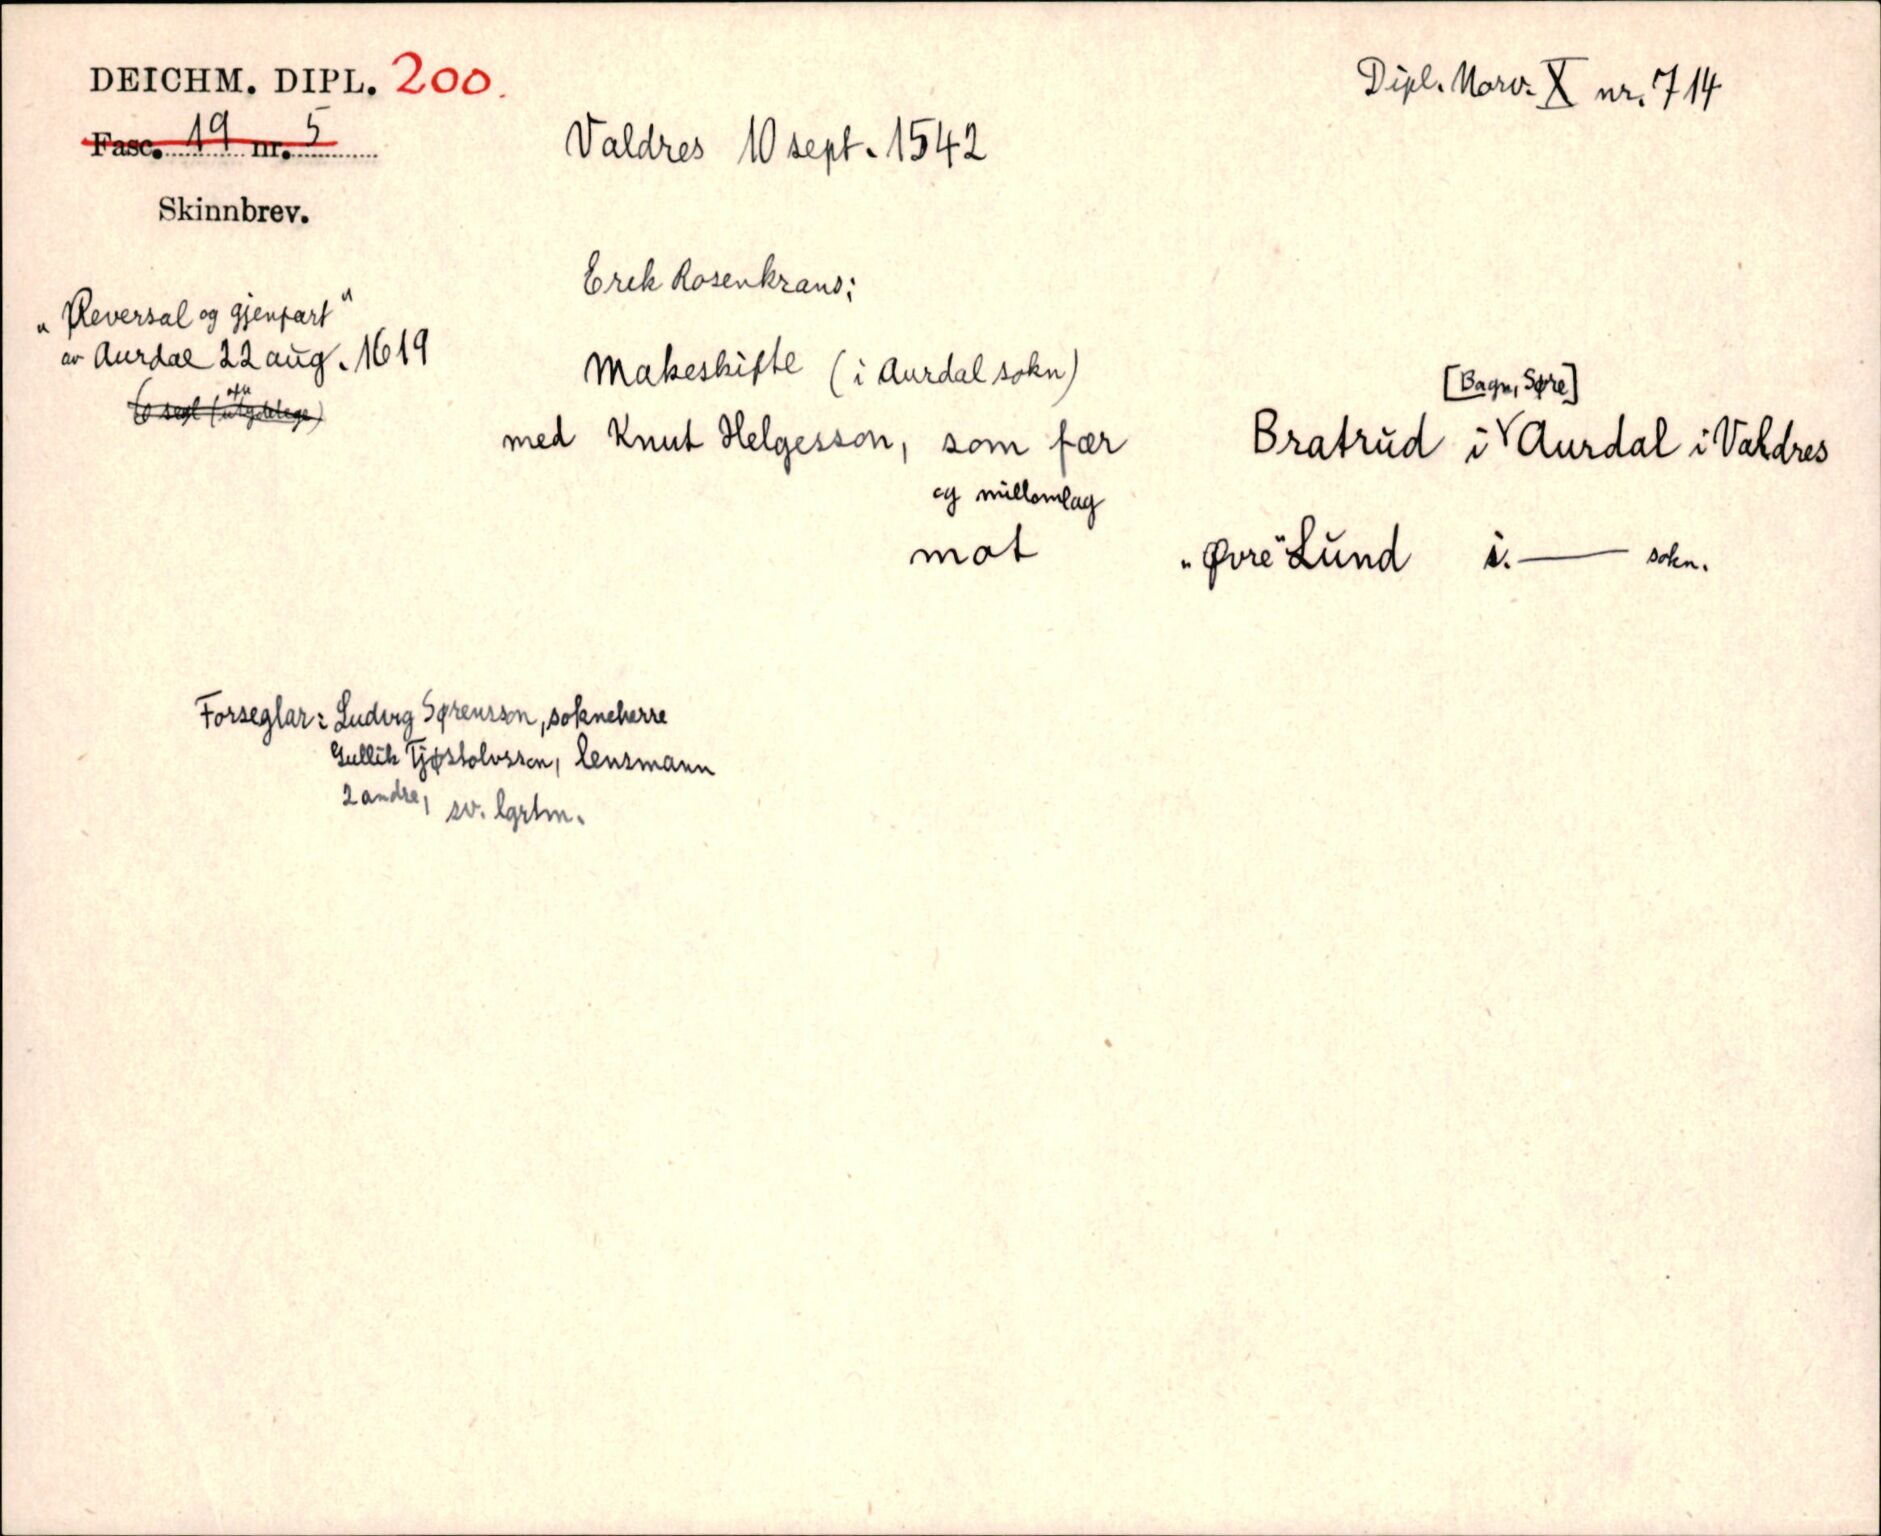 DEICHM. DIPL. 200.
Dipl. Norv. X nr. 714
Fasc. 19 nr. 5
Valdres 10 sept. 1542
Skinnbrev.
Erik Rosenkrans:
„Reversal og gjenpart"
av Aurdal 22 aug. 1619
Makeskifte (i Aurdal sokn)
[Bagn, Søre]
med Knut Helgesson, som fær Bratrud i Aurdal i Valdres
og millomlag
mot „Øvre" Lund i. — sokn.
Forseglar: Ludvig Sørensson, sokneherre
Gullik Tjøstolvsson, lensmann
2 andre, sv. lgrtm.